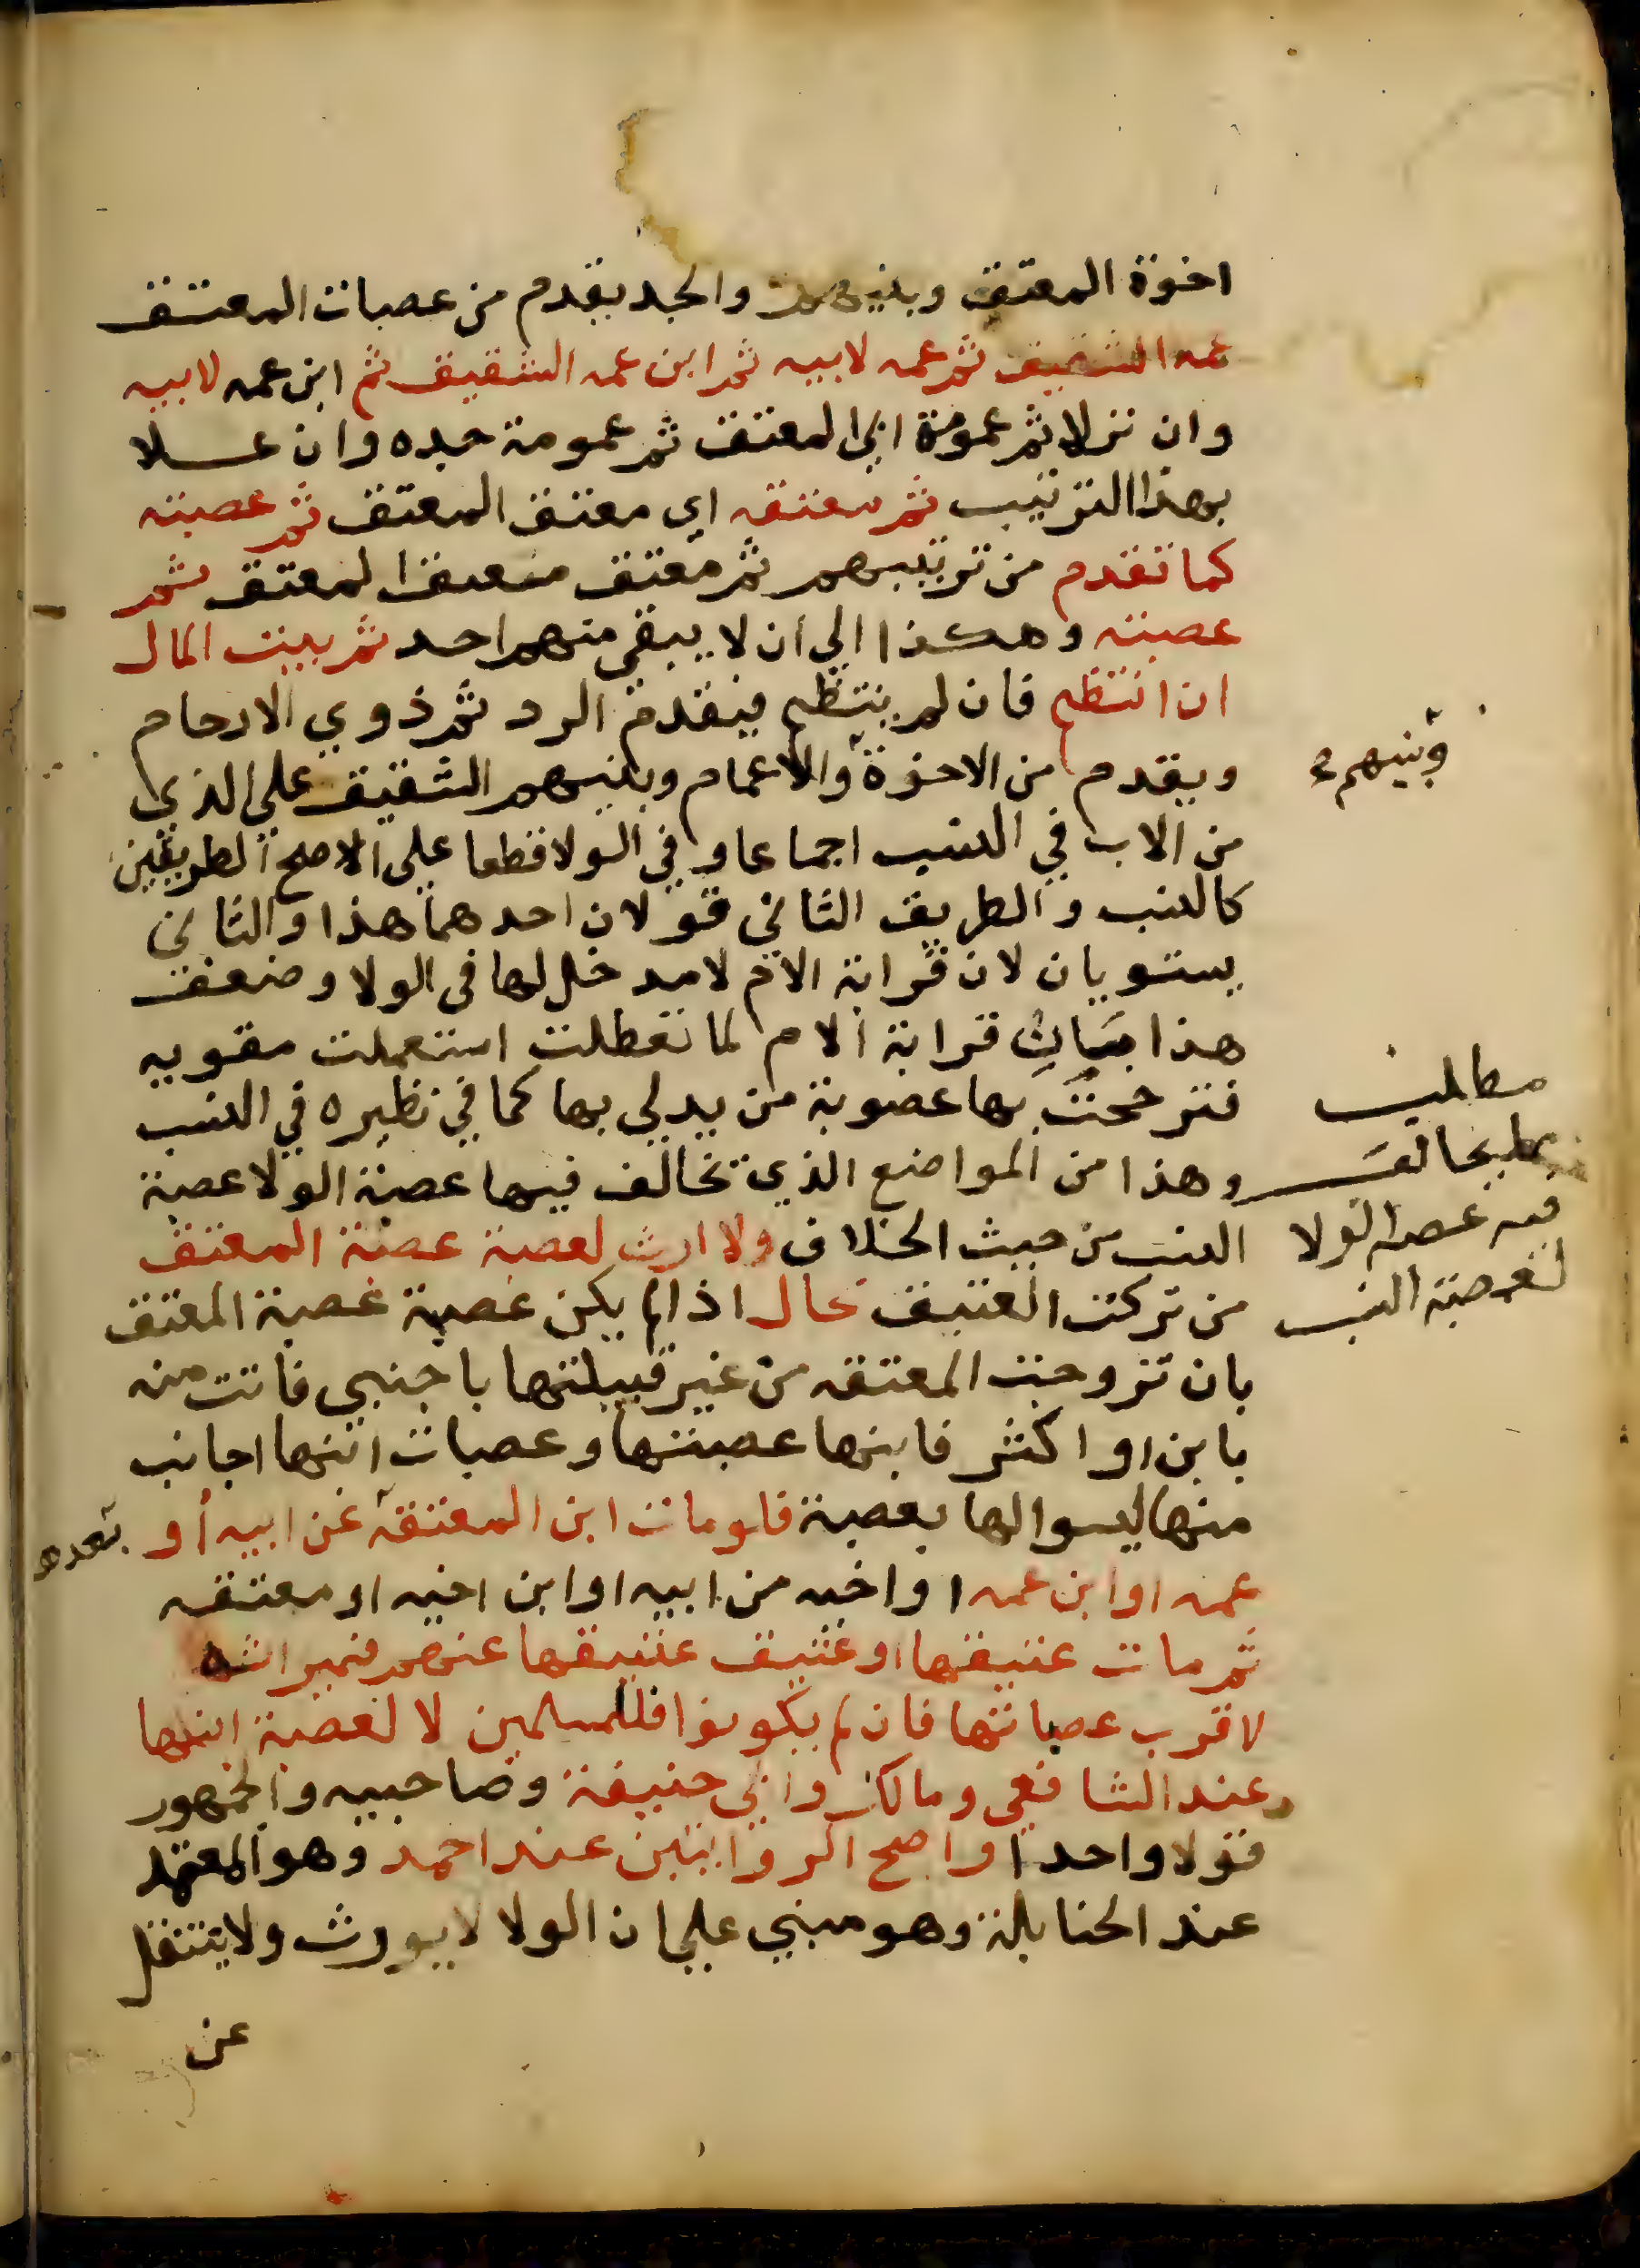 اخوة المعتق وبنيهم والجد يقدم من عصبات المعتق
عمه الشقيق ثم عمه لابيه ثم ابن عمه الشقيق ثم ابن عمه لابيه
وان نزلا ثم عمومة ابي المعتق ثم عمومة جده وان علا
بهذا الترتيب ثم معتقه اي معتق المعتق ثم عصبته
كما تقدم من ترتيبهم ثم معتق معتق المعتق ثم
عصبته وهكذا الي ان لا يبقي منهم احد ثم بيت المال
ان انتظم فان لم ينتظم فيقدم الرد ثم ذوي الارحام
ويقدم من الاخوة والاعمام وبنيهم الشقيق علي الذي
وبنيهم
من الاب في النسب اجماعا وفي الولا قطعا علي الاصح الطريقين
كالنسب والطريق الثاني قولان احدهما هذا والثاني
يستويان لان قرابة الام لا مدخل لها في الولا وضعف
هذا بان قرابة الام لما تعطلت استعملت مقويه
فترجحت بها عصوبة من يدلي بها كما في نظيره في النسب
وهذا من المواضع الذي تخالف فيها عصبة الولا عصبة
مطلب
يخالف
فيه عصبة الولا
لعصبة النسب
النسب من حيث الخلاف ولا ارث لعصبة عصبة المعتق
من تركت العتيق بحال اذا لم يكن عصبة عصبة المعتق
بان تزوجت المعتقه من غير قبيلتها باجنبي فاتت منه
بابن او اكثر فابنها عصبتها وعصبات ابنها اجانب
منها ليسوا لها بعصبة فلو مات ابن المعتقة عن ابيه او
بعده
عمه او ابن عمه او اخيه من ابيه او ابن اخيه او معتقه
ثم مات عتيقها او عتيق عتيقها عنهم فميراثه
لاقرب عصباتها فان لم يكونوا فللمسلمين لا لعصبة ابنها
عند الشافعي ومالك وابي حنيفة وصاحبيه والجمهور
قولا واحدا واصح الروايتين عند احمد وهو المعتمد
عند الحنابلة وهو مبني علي ان الولا لا يورث ولا ينتقل
عن